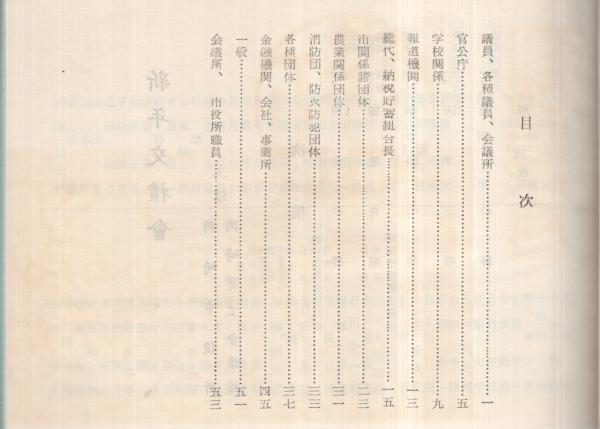 目次
議員、各種議員、会議所………一
官公庁………五
学校関係………九
報道機関………一三
総代、納税貯蓄組合長………一五
市関係諸団体………二三
農業関係団体………三一
消防団、防火防犯団体………三三
各種団体………三七
金融機関、会社、事業所………四五
一般………五一
会議所、市役所職員………五三
新年交禮會
岡崎市役所
岡崎商工会議所